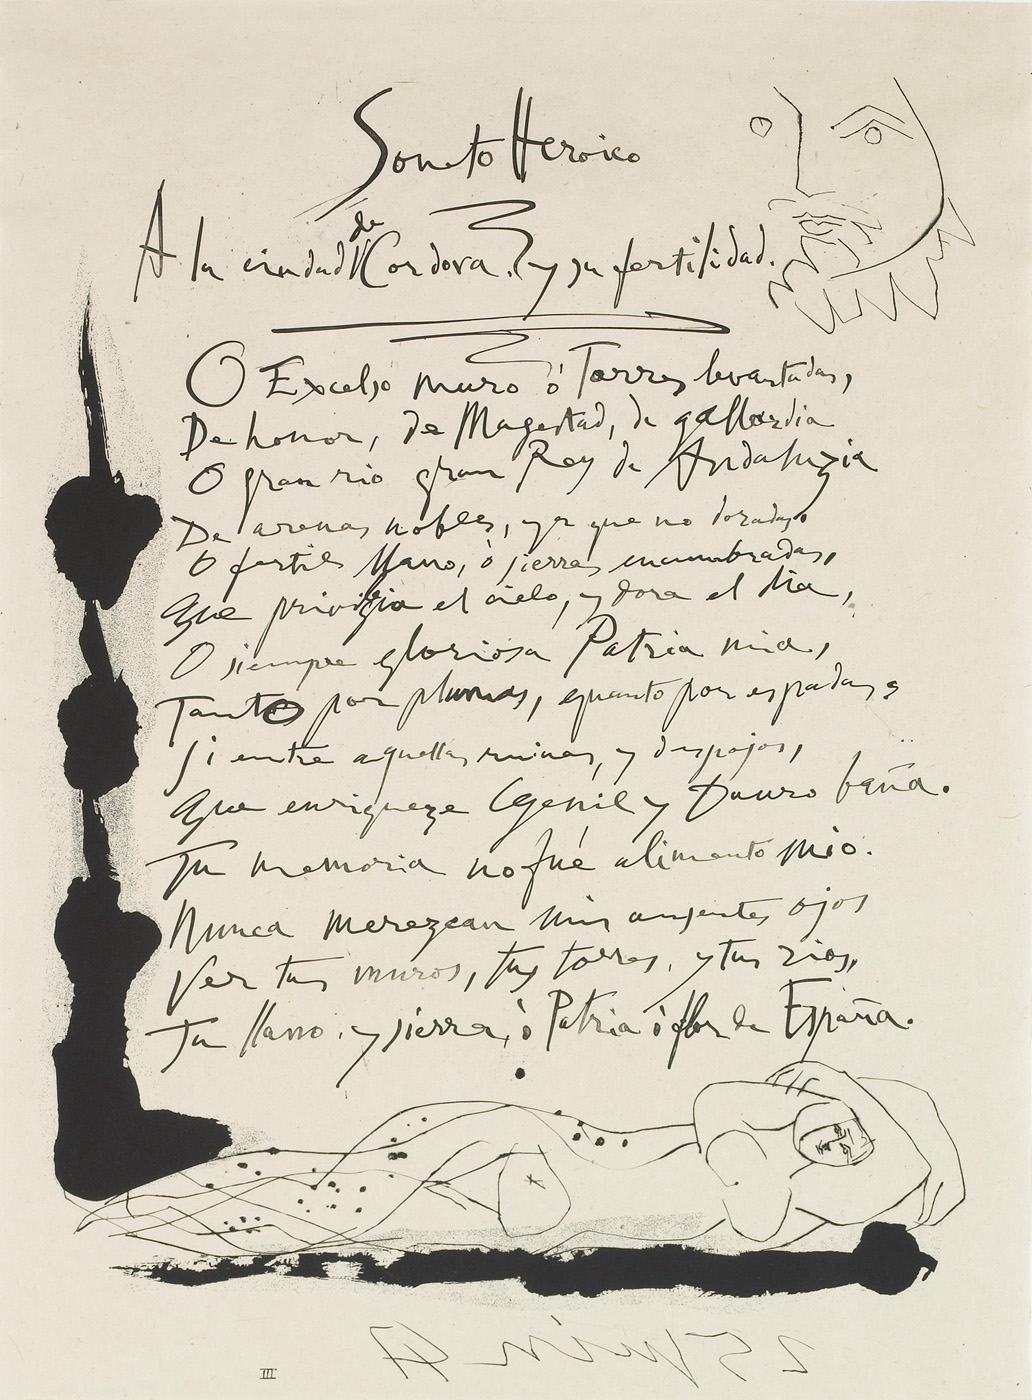 Soneto Heroico
A la ciudad de Cordova. y su fertilidad.
O Excelso muro ó Torres levantadas,
De honor, de Magestad, de gallardia
O gran rio gran Rey de Andaluzia
De arenas nobles, ya que no doradas.
O fertil llano, ò sierras encumbradas,
Que privilegia el cielo, y dora el dia,
O siempre gloriosa Patria mia,
Tanto por plumas, quanto por espadas,
Si entre aquellas ruinas, y despojos,
Que enriqueze Genil y Dauro baña.
Tu memoria no fué alimento mio.
Nunca merezcan mis ausentes ojos
Ver tus muros, tus torres, y tus rios,
Tu llano, y sierra, ò Patria ò flor de España.
25 juin 47
III